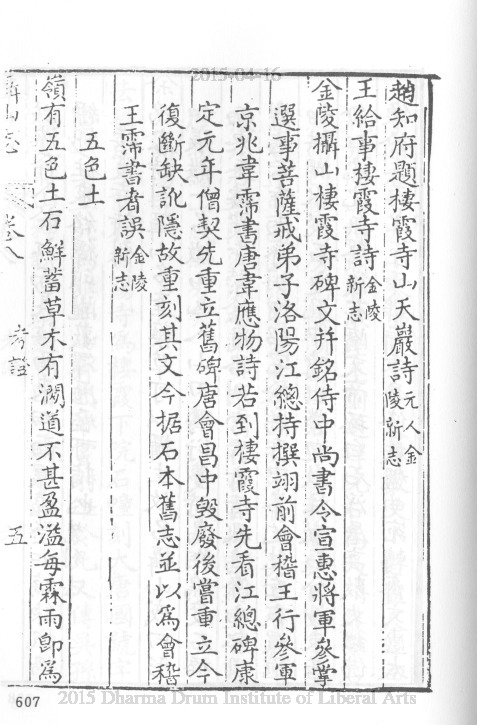 2015-04-16
趙知府題棲霞寺山天巖詩元人金陵新志
王給事棲霞寺詩金陵新志
金陵攝山棲霞寺碑文幷銘侍中尚書令宣惠將軍叅掌
選事菩薩戒弟子洛陽江總持撰翊前會稽王行叅軍
京兆韋霈書唐韋應物詩若到棲霞寺先看江總碑康
定元年僧契先重立舊碑唐會昌中毀廢後嘗重立今
復斷缺訛隱故重刻其文今据石本舊志並以爲會稽
王霈書者誤金陵新志
五色土
嶺有五色土石鮮蓄草木有澗道不甚盈溢每霖雨卽爲
山志
卷八
考證
五
607
2015 Dharma Drum Institute of Liberal Arts